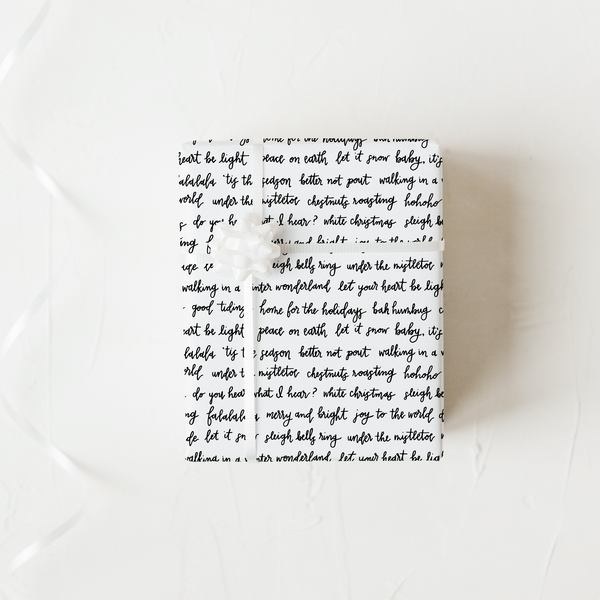 home for the holidays bah humbug
heart be light peace on earth let it snow baby, it's
alalala 'tis the season better not pout walking in a
world under the mistletoe chestnuts roasting hohoho
do you hear what I hear? white christmas sleigh
merry and bright joy to the world
sleigh bells ring under the mistletoe
walking in a winter wonderland let your heart be
good tidings home for the holidays bah humbug
heart be light peace on earth let it snow baby, it's
lalala 'tis the season better not pout walking in a
under the mistletoe chestnuts roasting hohoho
do you hear what I hear? white christmas sleigh
falalala merry and bright joy to the world
let it snow sleigh bells ring under the mistletoe
walking in a winter wonderland let your heart be